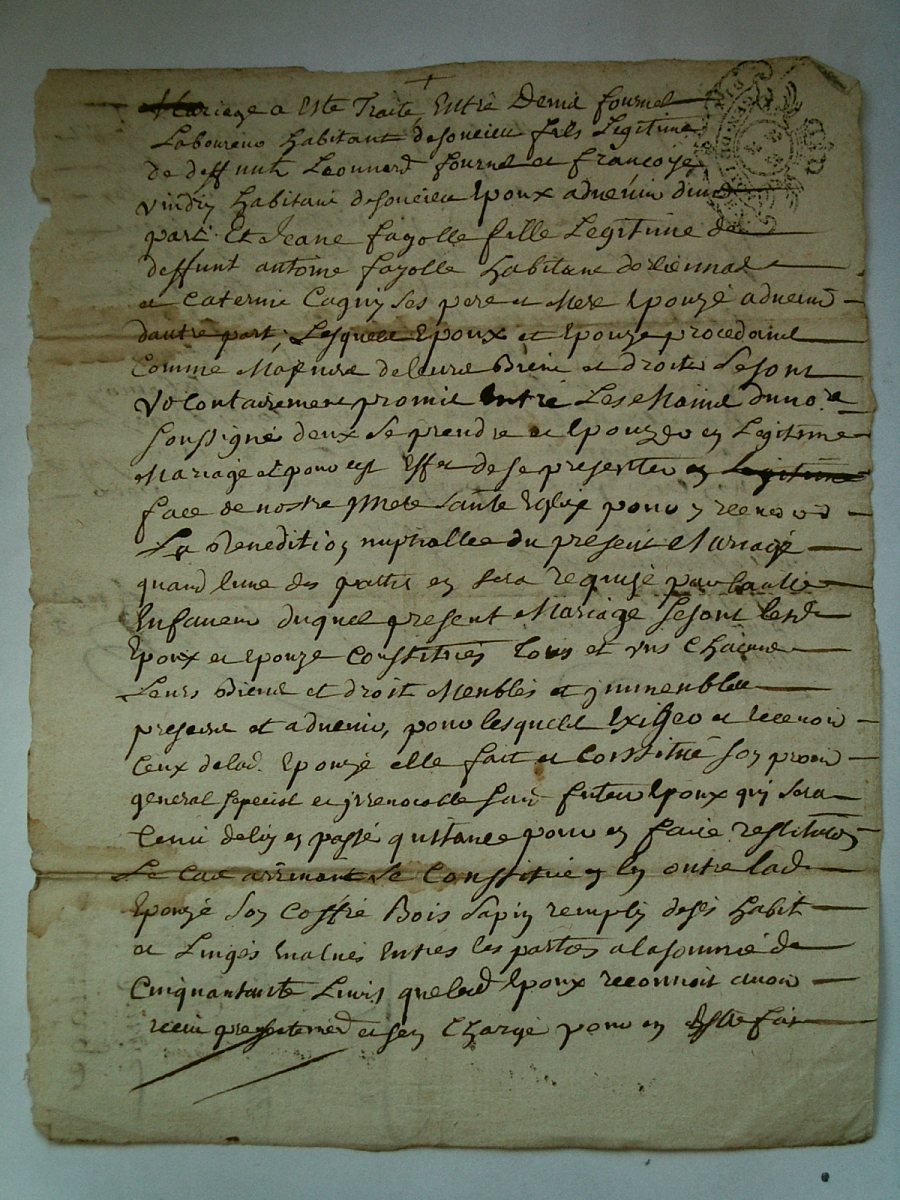 Mariage a Este Traité Entre Denis fournel
Laboureur habitant desoucieu fils Legitime
de deffunt Leonnard fournel et francoise
vindry habitant desoucieu Epoux advenir dune
part Et Jeane fayolle fille Legitime de
deffunt antoine fayolle habitant de
et Caterine Cagny ses pere et Mere Epouze advenir
dautre part, Lesquels Epoux et Epouze procedant
Comme Majeurs deleurs Biens et droits Sesont
Volontairement promis Entre Les Mains du no.re
soussigné deux se prendre et Epouzer en Legitime
Mariage et pour cest Effet de se presenter en Legitime
face de nostre Mere sainte Eglize pour y recevoir
La Benedition nuptialle du present Mariage
quand lune des parties en sera requize par lautre
Enfaveur duquel present Mariage Sesont lesd
Epoux et Epouze Constitués tous et uns Chacuns
Leurs Biens et droit Meubles et jmmeubles
presents et advenir, pour lesquels Exiger et recevoir
Ceux delad. Epouze elle fait et Constitué son procur
general special et jrrevocable sond futeur Epoux qui sera
tenu deluy en passé quitance pour en faire restitution
Le Cas arrivant Se Constitue en outre lad
Epouze son Coffre Bois Sapin remply desés habit
et Linges Evalués Entres les parties alasomme de
Cinquantante Livres queled Epoux reconnoit avoir
receu et sen Charge pour en Estre fait